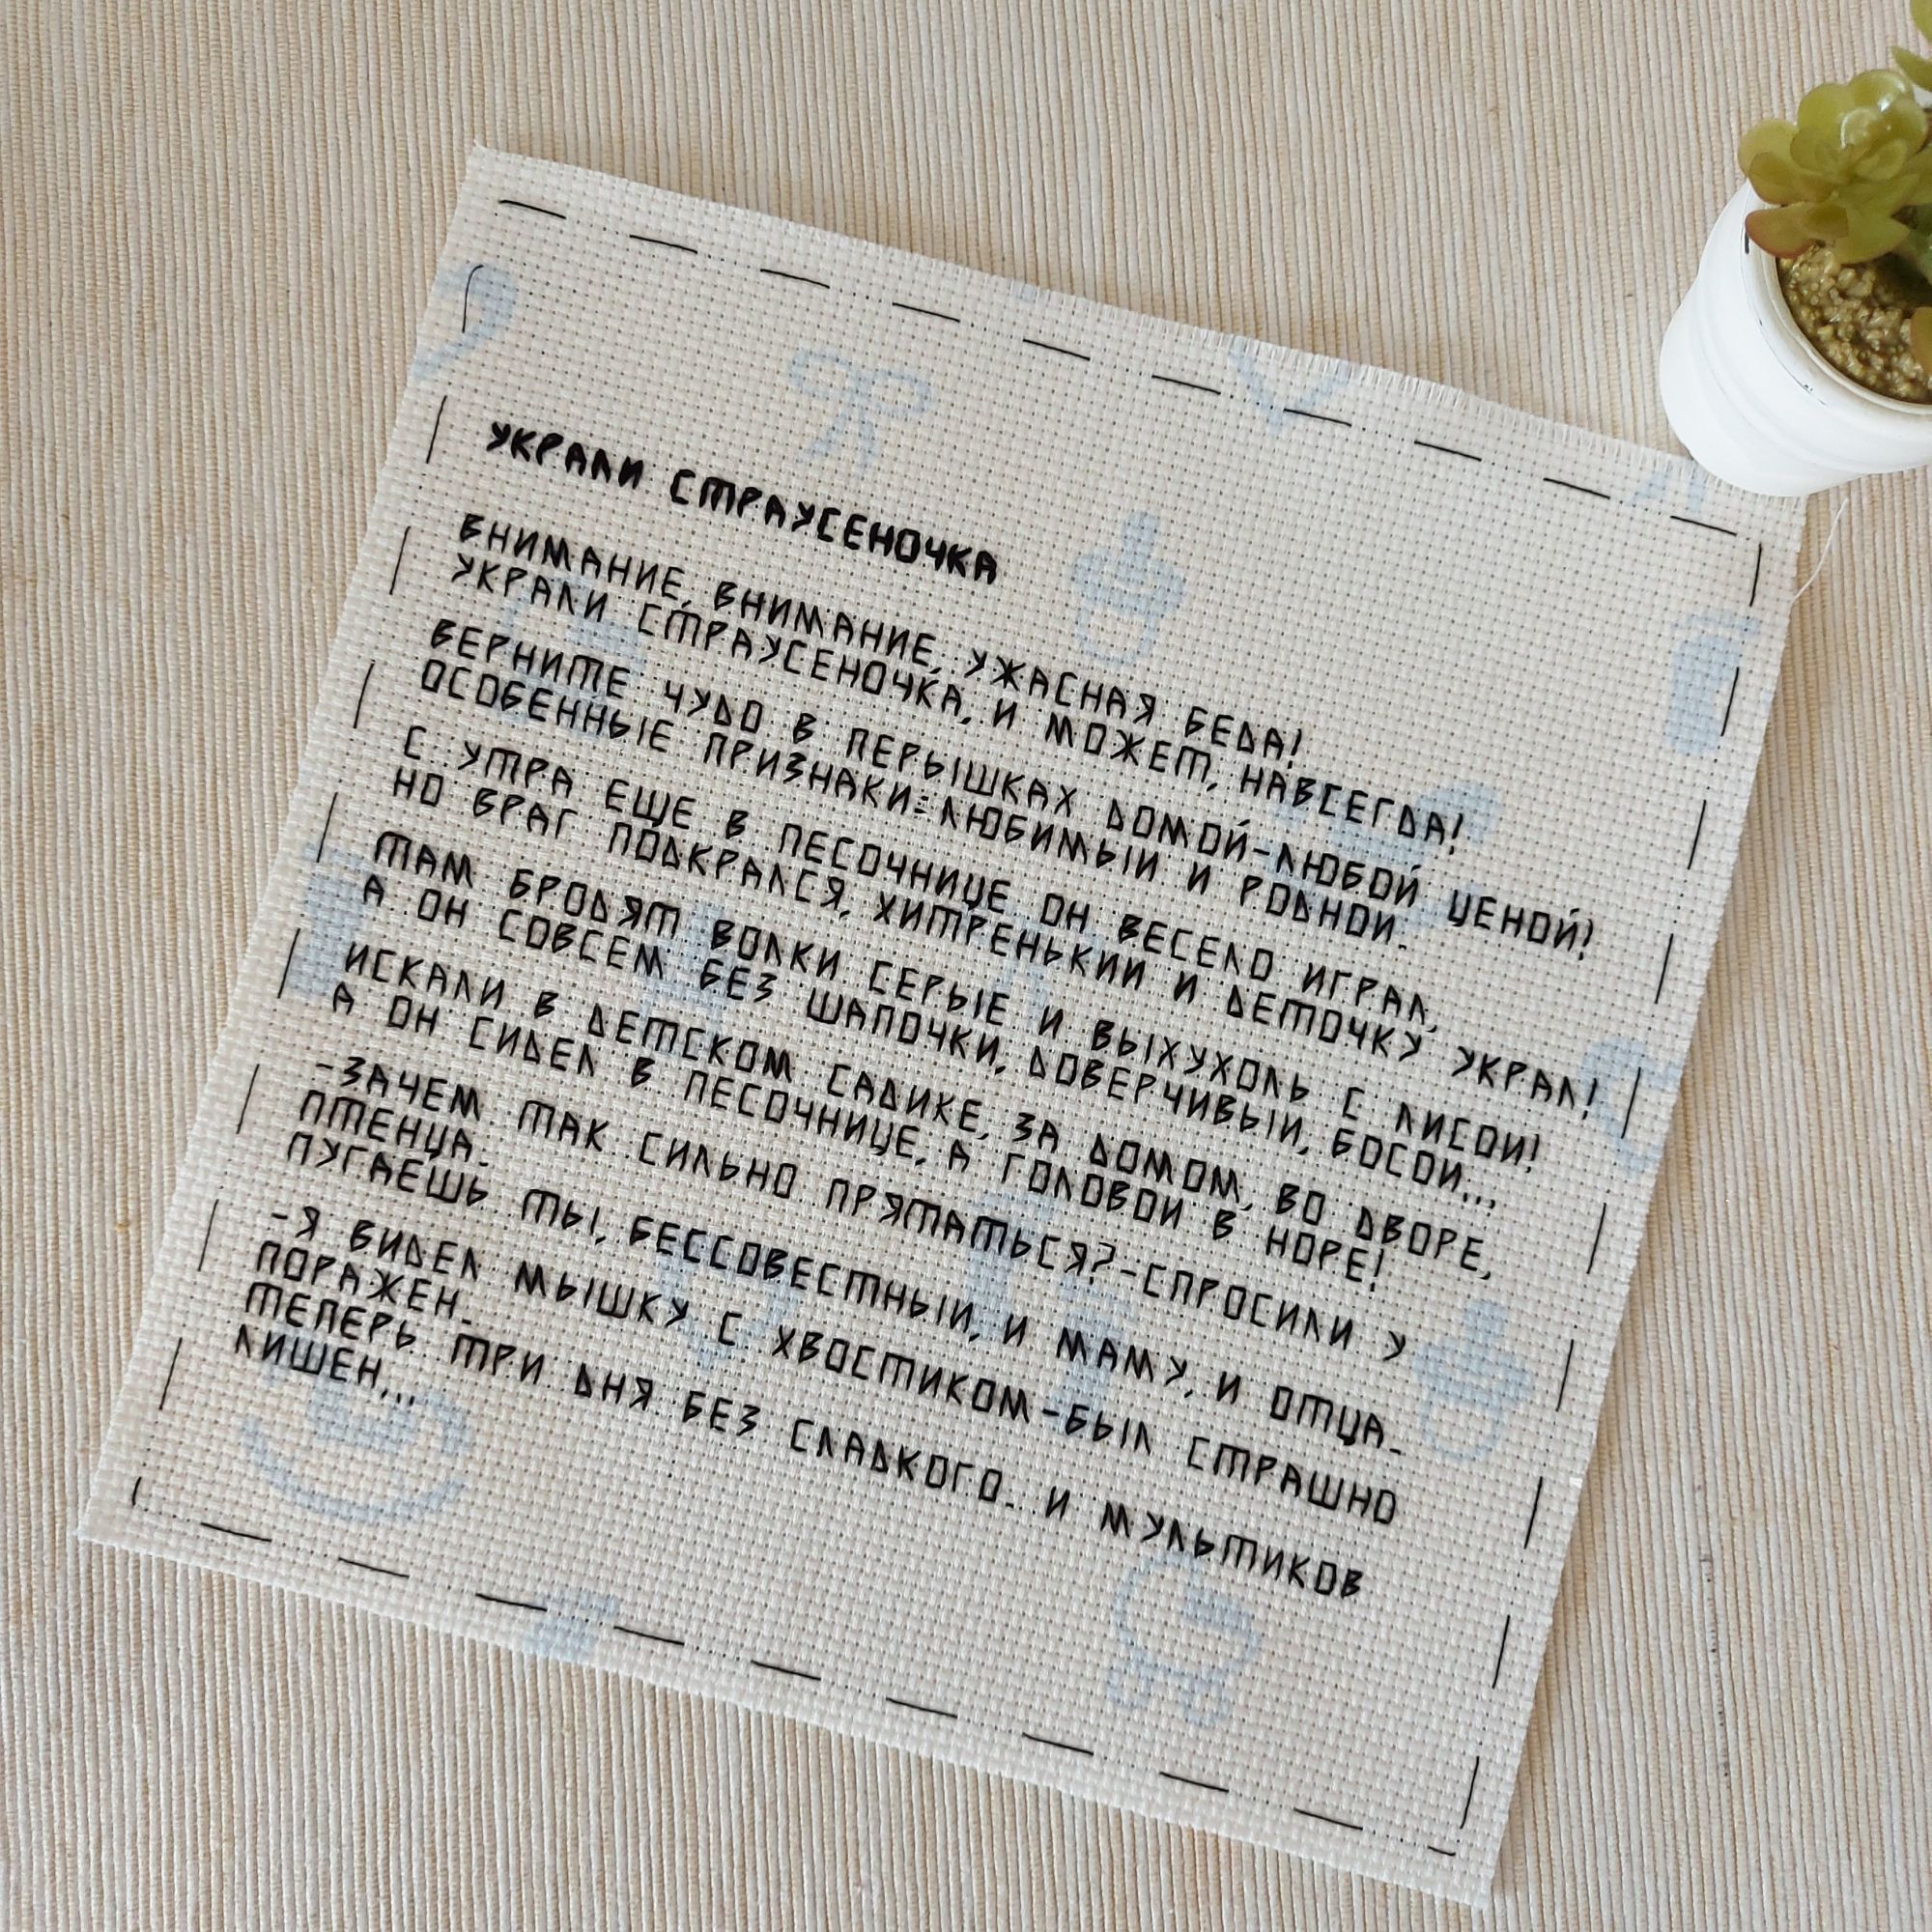 УКРАЛИ СТРАУСЕНОЧКА
ВНИМАНИЕ, ВНИМАНИЕ, УЖАСНАЯ БЕДА!
УКРАЛИ СТРАУСЕНОЧКА, И МОЖЕТ, НАВСЕГДА!
ВЕРНИТЕ ЧУДО В ПЕРЫШКАХ ДОМОЙ-ЛЮБОЙ ЦЕНОЙ!
ОСОБЕННЫЕ ПРИЗНАКИ: ЛЮБИМЫИ И РОДНОИ.
С УТРА ЕЩЕ В ПЕСОЧНИЦЕ ОН ВЕСЕЛО ИГРАЛ,
НО ВРАГ ПОДКРАЛСЯ, ХИТРЕНЬКИИ И ДЕТОЧКУ УКРАЛ!
ТАМ БРОДЯТ ВОЛКИ СЕРЫЕ И ВЫХУХОЛЬ С ЛИСОИ!
А ОН СОВСЕМ БЕЗ ШАПОЧКИ, ДОВЕРЧИВЫИ, БОСОИ...
ИСКАЛИ В ДЕТСКОМ САДИКЕ, ЗА ДОМОМ, ВО ДВОРЕ,
А ОН СИДЕЛ В ПЕСОЧНИЦЕ, А ГОЛОВОИ В НОРЕ!
-ЗАЧЕМ ТАК СИЛЬНО ПРЯТАТЬСЯ?-СПРОСИЛИ У
ПТЕНЦА.
ПУГАЕШЬ ТЫ, БЕССОВЕСТНЫИ, И МАМУ, И ОТЦА.
-Я ВИДЕЛ МЫШКУ С ХВОСТИКОМ-БЫЛ СТРАШНО
ПОРАЖЕН.
ТЕПЕРЬ ТРИ ДНЯ БЕЗ СЛАДКОГО. И МУЛЬТИКОВ
ЛИШЕН...